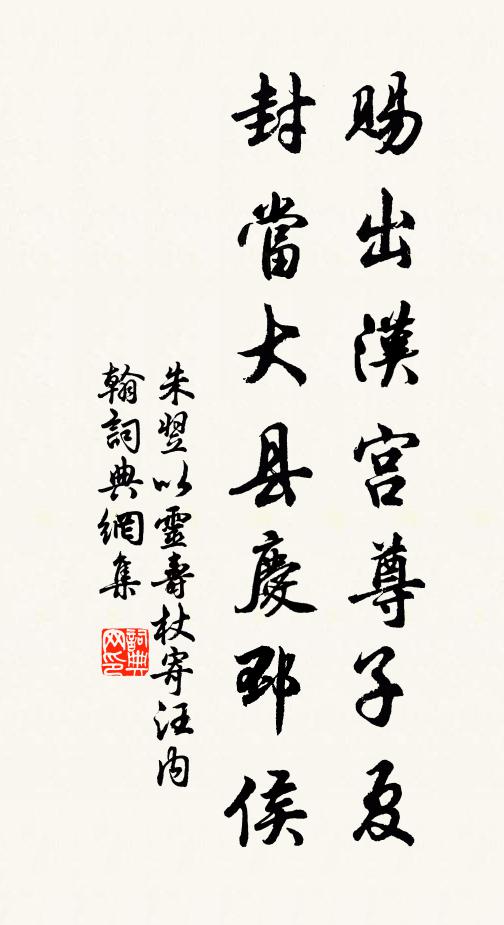 賜出漢宮尊子夏
封當大县慶邳侯
朱翌以靈壽杖寄汪內
翰詞典網集
詞典网印